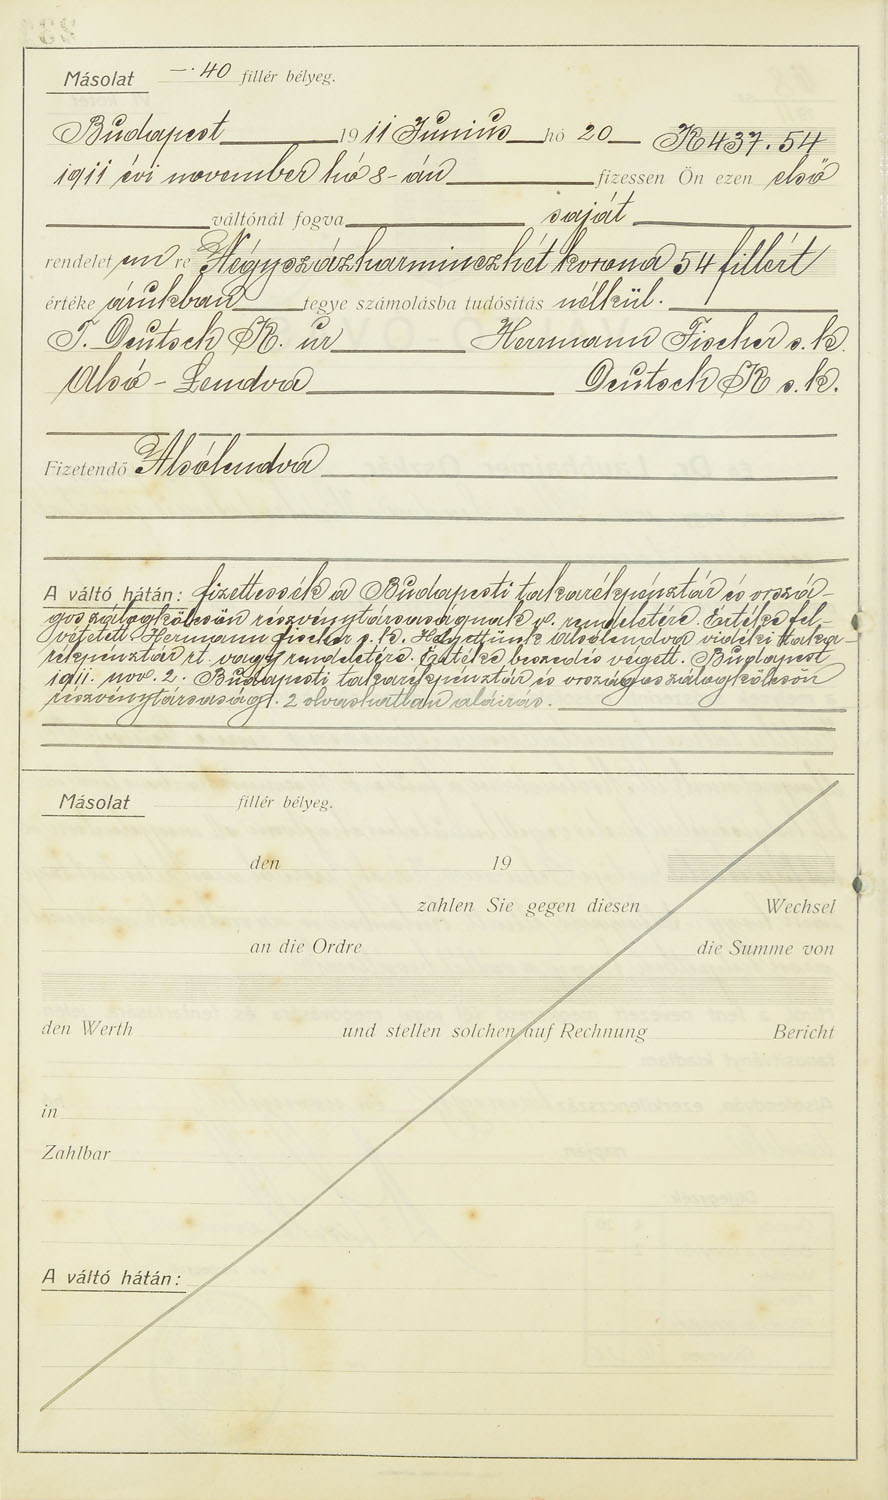 Másolat —·40 fillér bélyeg.
Budapest 1911 Junius hó 20 K 437.54
1911 évi november hó 8-án fizessen Ön ezen első
váltónál fogva saját
rendelet em re Négyszázharminczhét korona 54 fillért
értéke árukban tegye számolásba tudósítás nélkül.
T. Deutsch K. ur Herrmann Fischer s. k.
Alsó-Lendva Deutsch K s. k.
Fizetendő Alsólendva
A váltó hátán: fizettessék a Budapesti takarékpénztár és orszá-
gos zálogkölcsön részvénytársaságnak v. rendeletére. Értéke fel-
vétetett Herrmann Fischer s. k. Helyettünk alsólendva vidéki taka-
rékpénztár rt. vagy rendeletére. Értéke beszedés végett. Budapest
1911. nov. 2. Budapesti takarékpénztár és országos zálogkölcsön
részvénytársaság. 2 olvashatlan aláirás.
Másolat fillér bélyeg.
den 19
zahlen Sie gegen diesen Wechsel
an die Ordre die Summe von
den Werth und stellen solchen auf Rechnung Bericht
in
Zahlbar
A váltó hátán: